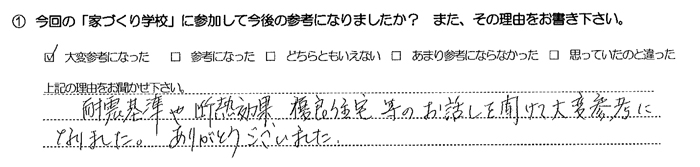 ① 今回の「家づくり学校」に参加して今後の参考になりましたか？ また、その理由をお書き下さい。
☑ 大変参考になった □ 参考になった □ どちらともいえない □ あまり参考にならなかった □ 思っていたのと違った
上記の理由をお聞かせ下さい。
耐震基準や断熱効果、優良住宅等のお話しを聞けて大変参考に
なりました。ありがとうございました。